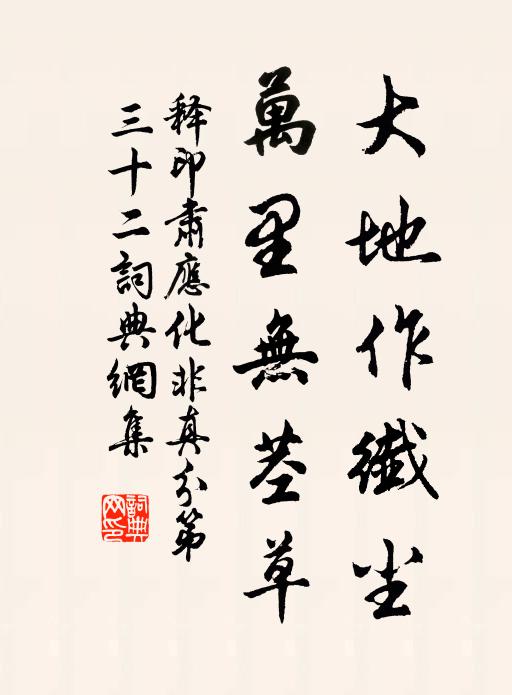 大地作纖尘
萬里無茎草
释印肅應化非真分第
三十二詞典網集
詞典
网印